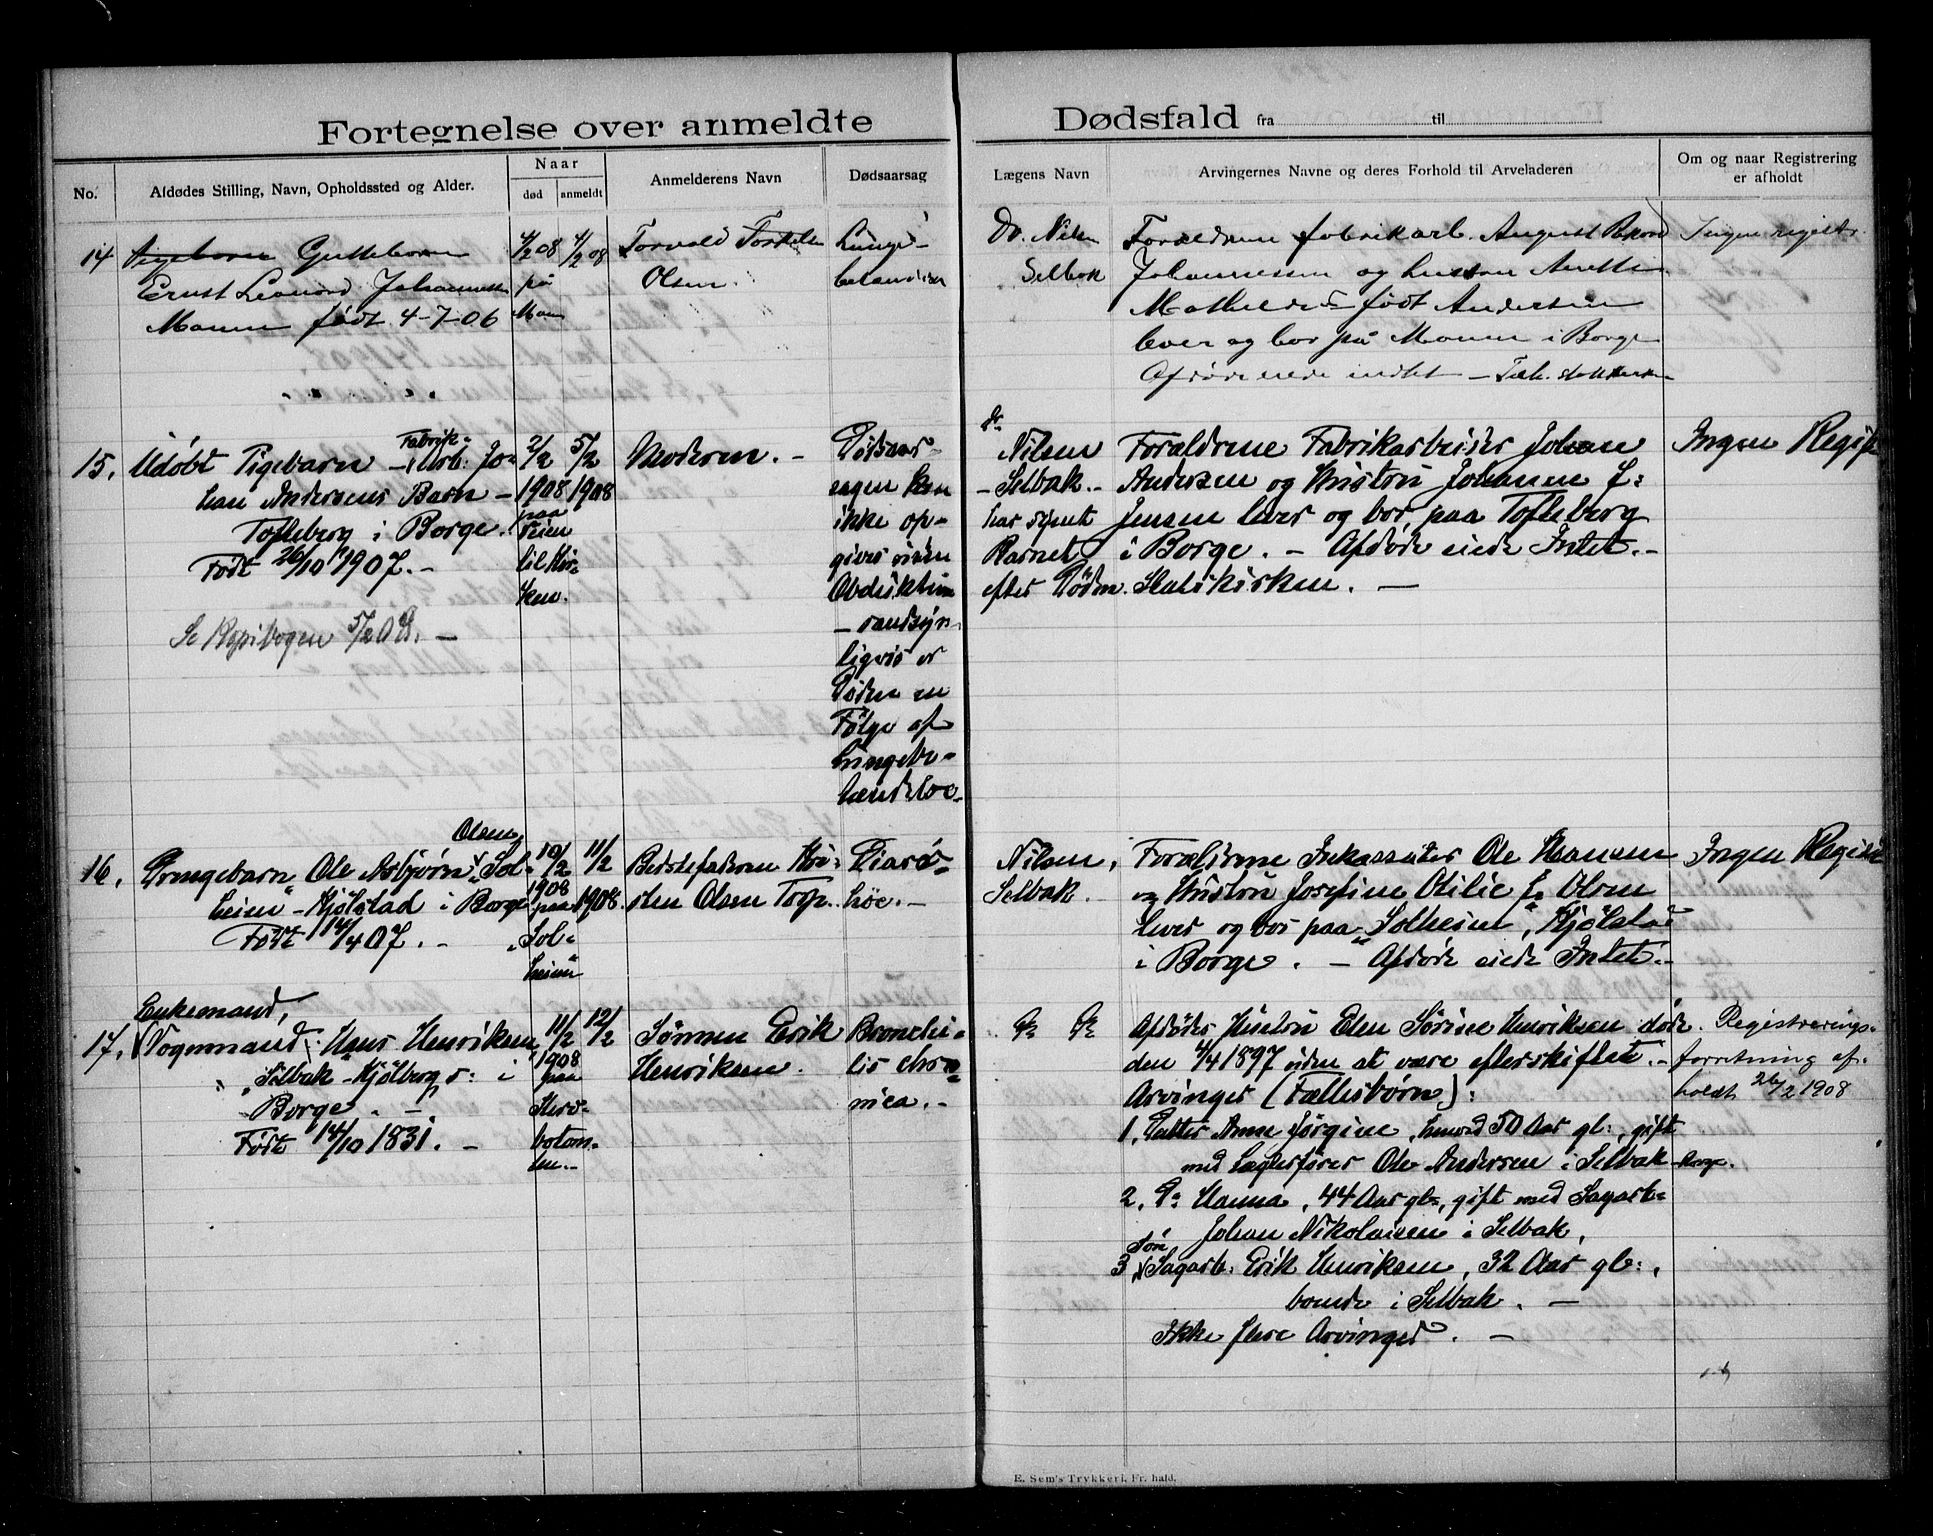 Fortegnelse over anmeldte Dødsfald fra til
No.
Afdødes Stilling, Navn, Opholdssted og Alder.
Naar
død
anmeldt
Anmelderens Navn
Dødsaarsag
Lægens Navn
Arvingernes Navne og deres Forhold til Arveladeren
Om og naar Registrering
er afholdt
14
Guttebarn
Ernst Leonard Johannesen
Moum født 4-7-06
4/2 08
på
Moum
4/2 08
Torvald Torkels
Olsen.
Lunge-
betændelse
Dr. Nilsen
Selbak
Forældrene fabrikarb. August
Johannessen og hustru
Mathilde født Andersen
lever og bor på Moum i Borge
Afdøde eiede intet
Ingen registr.
15.
Fabrik-
Udøbt Pigebarn – Arb: Jo-
han Andersens Barn –
Tofteberg i Borge.
Født 26/10 1907. –
Se Kopibogen 5/2 08. –
2/2
1908
paa
Veien
til Kir-
ken.
5/2
1908
Moderen. –
Dødsaar-
sagen kan
ikke op-
gives uden
Obduktion
– sandsyn-
ligvis er
Døden en
Følge af
Lungebe-
tændelse.
dr.
Nilsen
– Selbak. –
har synet
Barnet
efter Døden.
Forældrene Fabrikarbeider Johan
Andersen og Hustru Johanne f:
Jensen lever og bor paa Tofteberg
i Borge. – Afdøde eiede Intet. –
Statskirken. –
Ingen Regist
16.
Olsen
Drengebarn Ole Asbjørn „Sol-
heim" – Kjølstad i Borge
Født 14/4 07. –
10/2
1908
paa
„Sol-
heim"
11/2
1908.
Bedstefaderen Kri-
sten Olsen Torp.
Diare-
høe. –
Nilsen,
Selbak. –
Forældrene Inkassator Ole Hansen
og Hustru Josefine Otilie f. Olsen
lever og bor paa „Solheim", Kjølstad
i Borge. – Afdøde eiede Intet. –
Ingen Regist
17.
Enkemand,
Vognmand Hans Henriksen
Selbak – Kjølberg s: i
Borge. –
Født 14/10 1831. –
11/2
1908
paa
12/2
Sønnen Erik
Henriksen.
Bronchi-
tis chro-
nica. –
Do Do
Afdødes Hustru Elen Sørine Henriksen døde
den 4/4 1897 uden at være efterskiftet. –
Arvinger (Fællesbørn):
1, Datter Anne Jørgine, henved 50 Aar gl:, gift
med Lægterfører Ole Andersen i Selbak – Borge.
2, Do Hanna, 44 Aar gl:, gift med Sagarb:
Johan Nikolaisen i Selbak,
3, Søn Sagarb: Erik Henriksen, 32 Aar gl:,
boende i Selbak. –
Ikke flere Arvinger. –
Registrerings-
forretning af-
holdt 26/2 1908
E. Sem's Trykkeri, Fr.hald.